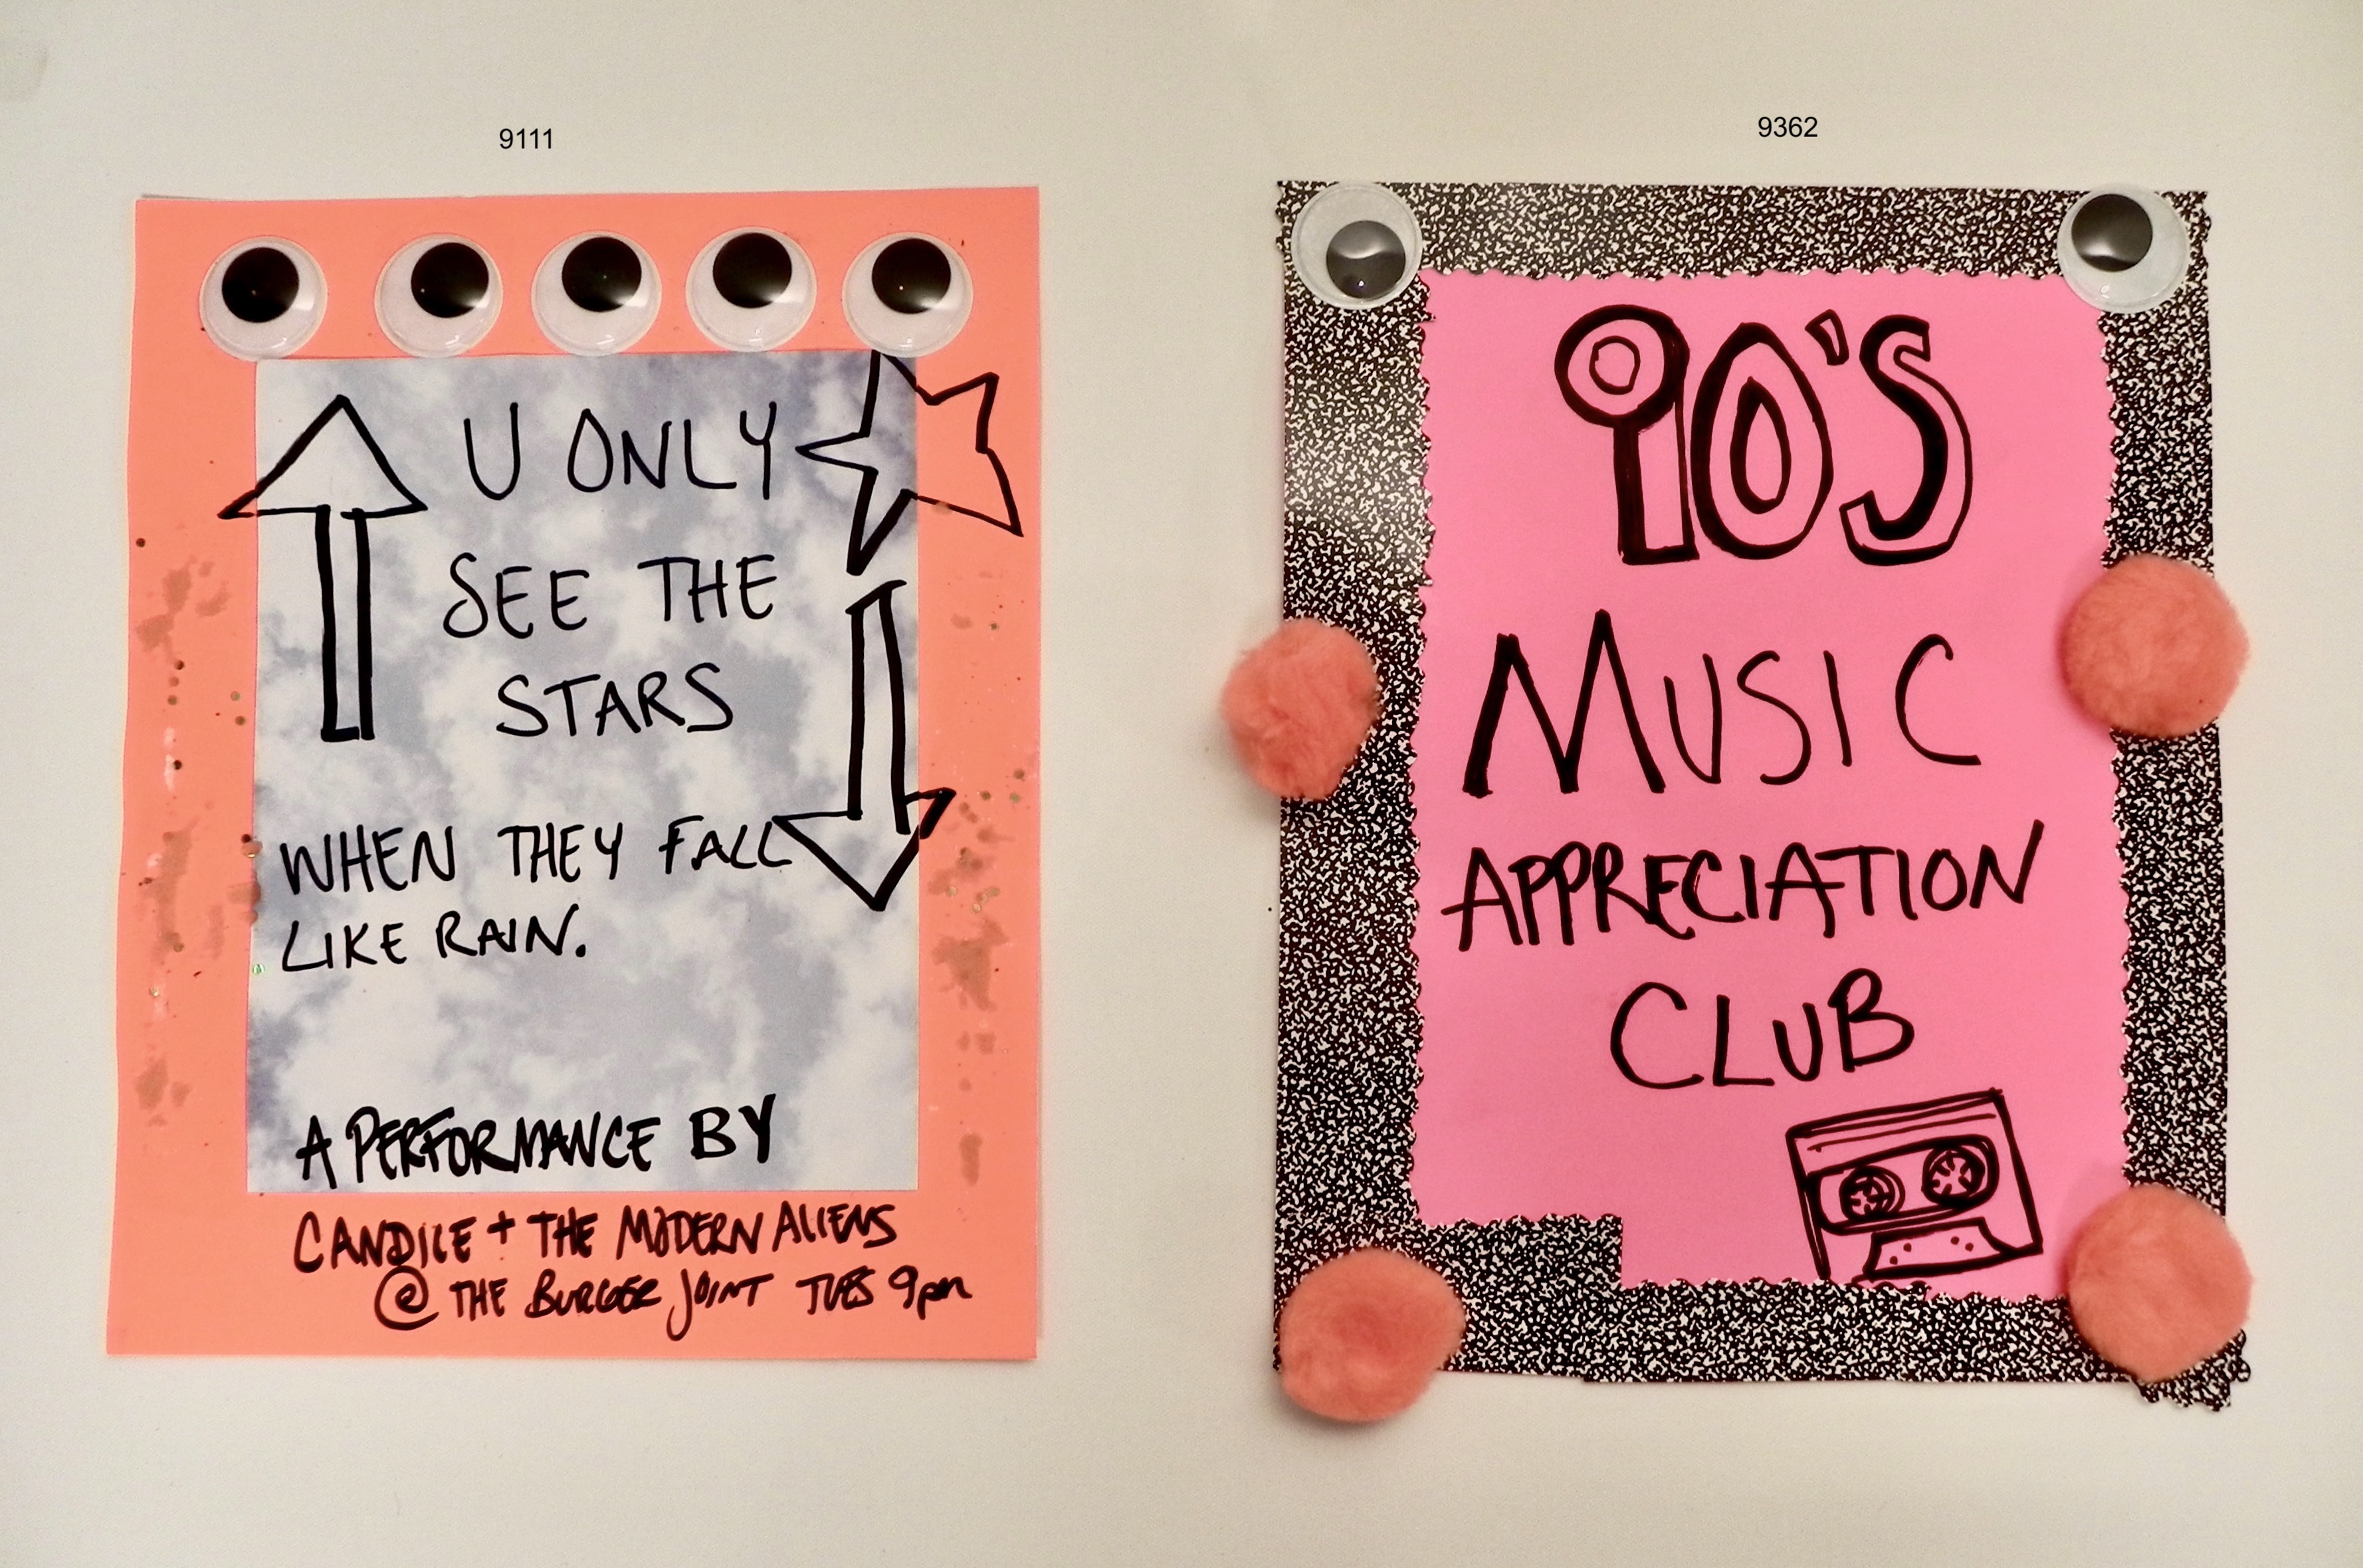 9111
U ONLY
SEE THE
STARS
WHEN THEY FALL
LIKE RAIN.
A PERFORMANCE BY
CANDICE + THE MODERN ALIENS
@ THE BURGER JOINT TUES 9pm
9362
90'S
MUSIC
APPRECIATION
CLUB